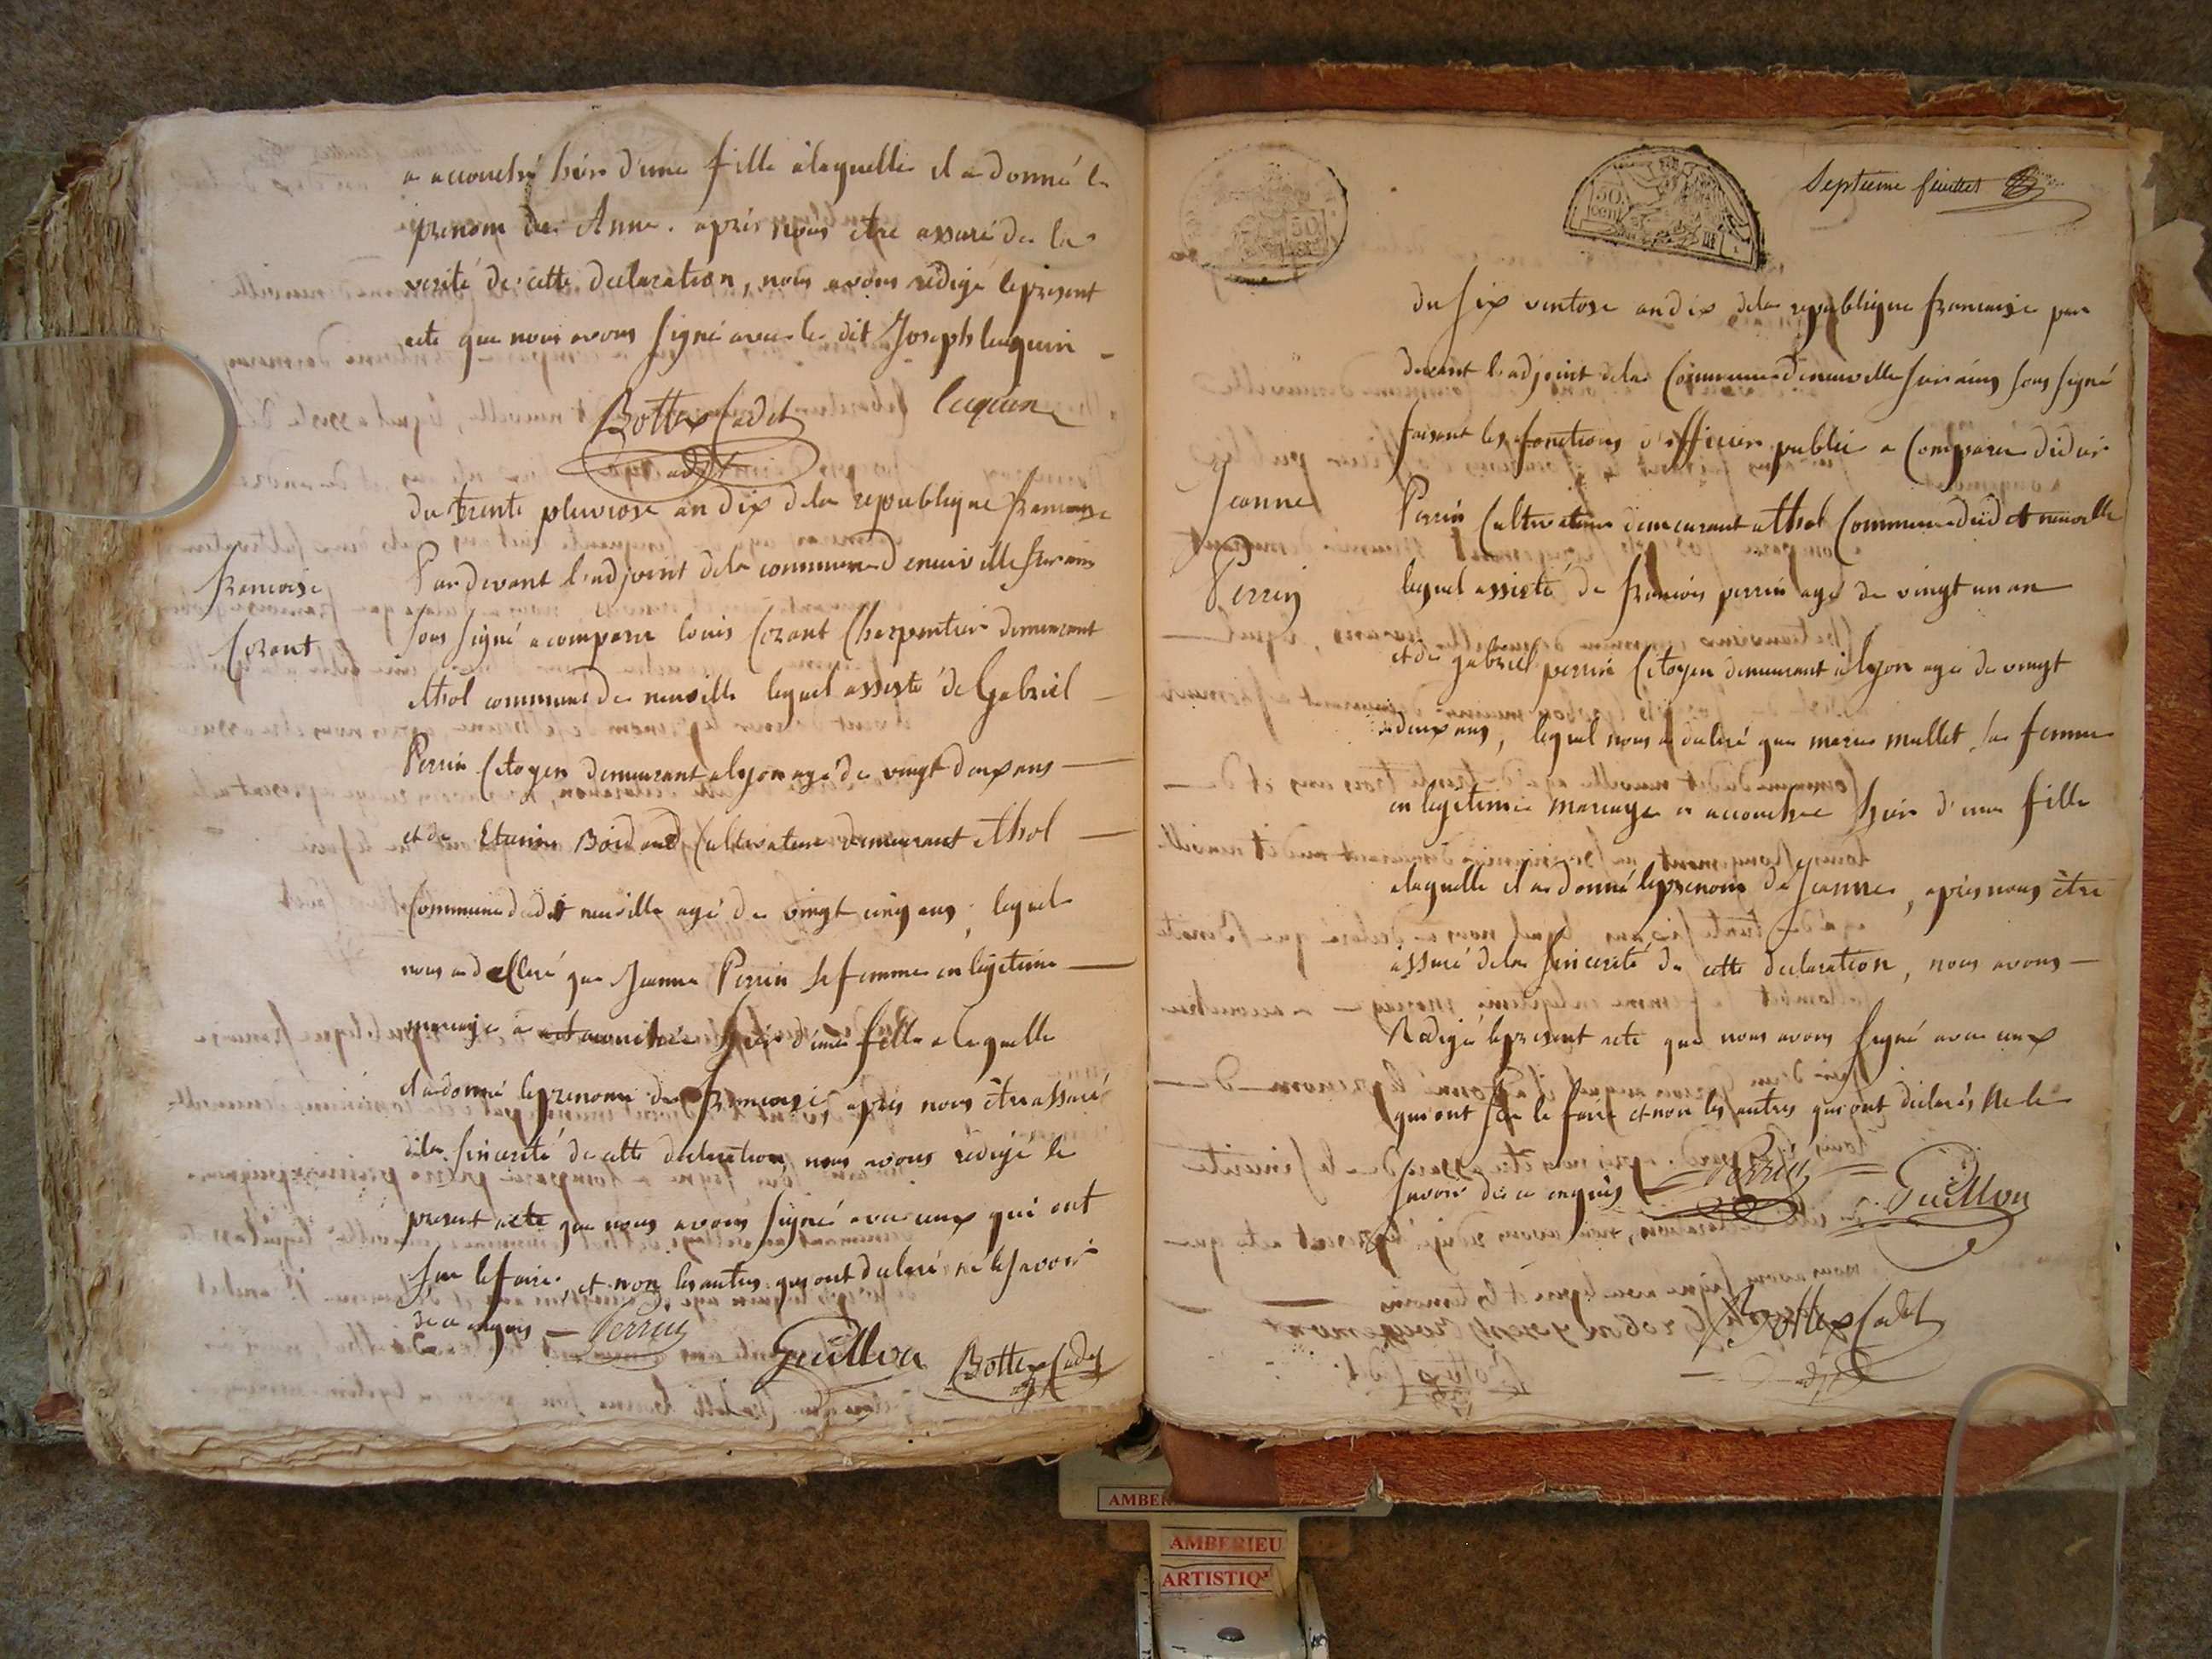 a accouché hier d'une fille alaquelle il a donné le
prenom de Anne. après nous être assuré de la
verité de cette declaration, nous avons redigé le present
acte que nous avons signé avec le dit Joseph luquin
Bottex Cadet luquin
adjt
du trente pluviose an dix de la republique francaise
francoise
Cozant
Par devant l'adjoint de la commune de neuville sur ains
sous signé a comparu louis Cozant Charpentier demeurant
a thol commune de neuville lequel assisté de Gabriel
Perrin Citoyen demeurant a lyon agé de vingt deux ans
et de Etienne Cultivateur demeurant a thol
Commune dudit neuville agé de vingt cinq ans, lequel
nous a declaré que Jeanne Perrin sa femme en legitime
mariage a accouchée hier d'une fille a laquelle
il a donné le prenom de francoise, après nous être assuré
de la sincerité de cette declaration, nous avons redigé le
present acte que nous avons signé avec ceux qui ont
su le faire, et non les autres qui ont declaré ne le savoir
de ce enquis Perrin
Guillon Bottex Cadet
adjt
Septieme feuillet
50. cent RF
du six ventose an dix de la republique francaise par
devant l'adjoint de la Commune de neuville sur ains sous signé
faisant les fonctions d'officier public a Comparu didier
Jeanne
Perrin
Perrin Cultivateur demeurant a thol Commune dudit neuville
lequel assisté de francois perrin agé de vingt un an
et de gabriel perrin Citoyen demeurant a lyon agé de vingt
deux ans, lequel nous a declaré que marie mallet sa femme
en legitime mariage a accouchee hier d'une fille
a laquelle il a donné le prenom de Jeanne, après nous être
assuré de la sincerité de cette declaration, nous avons
Redigé le present acte que nous avons signé avec ceux
qui ont su le faire et non les autres qui ont declarés ne le
savoir de ce enquis Perrin Guillon
Bottex Cadet
adjt
AMBERIEU
ARTISTIQ